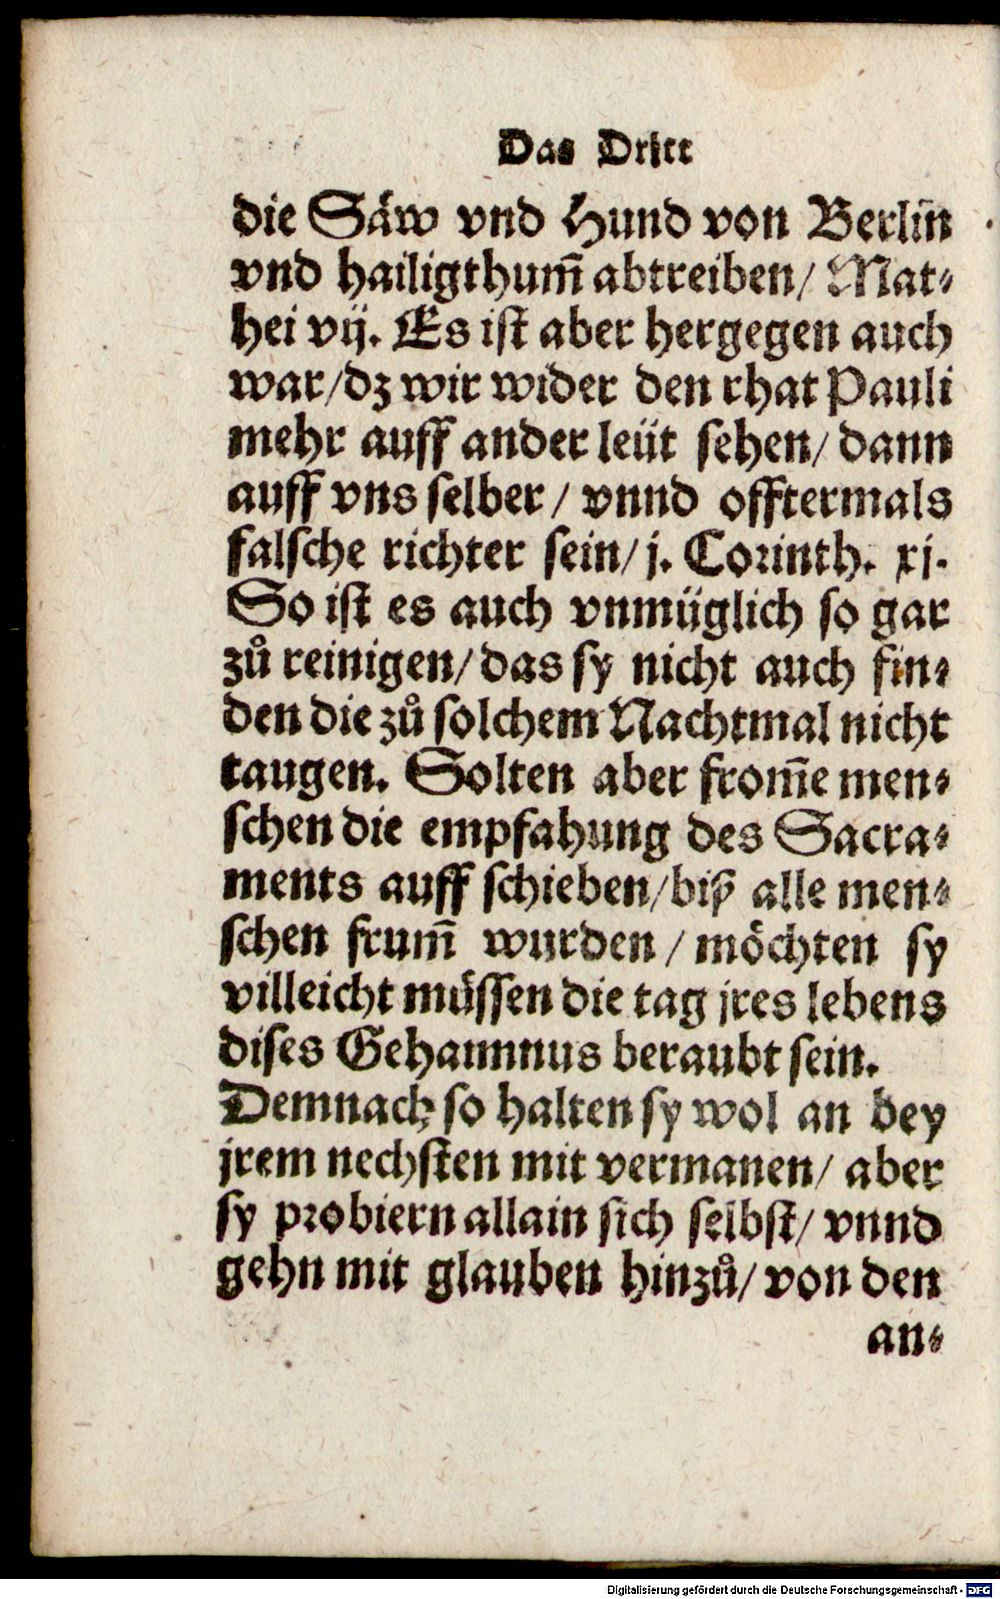 Das Dritt
die Säw vnd Hund von Berlin̄
vnd hailigthum̄ abtreiben/ Mat⸗
hei vij. Es ist aber hergegen auch
war/dz wir wider den rhat Pauli
mehr auff ander leüt sehen/ dann
auff vns selber/ vnnd offtermals
falsche richter sein/ j. Corinth. xj.
So ist es auch vnmüglich so gar
zů reinigen/ das sy nicht auch fin⸗
den die zů solchem Nachtmal nicht
taugen. Solten aber from̄e men⸗
schen die empfahung des Sacra⸗
ments auff schieben/biß alle men⸗
schen frum̄ wurden/ möchten sy
villeicht müssen die tag jres lebens
dises Gehaimnus beraubt sein.
Demnach so halten sy wol an bey
jrem nechsten mit vermanen/ aber
sy probiern allain sich selbst/ vnnd
gehn mit glauben hinzů/ von den
an⸗
Digitalisierung gefördert durch die Deutsche Forschungsgemeinschaft - DFG